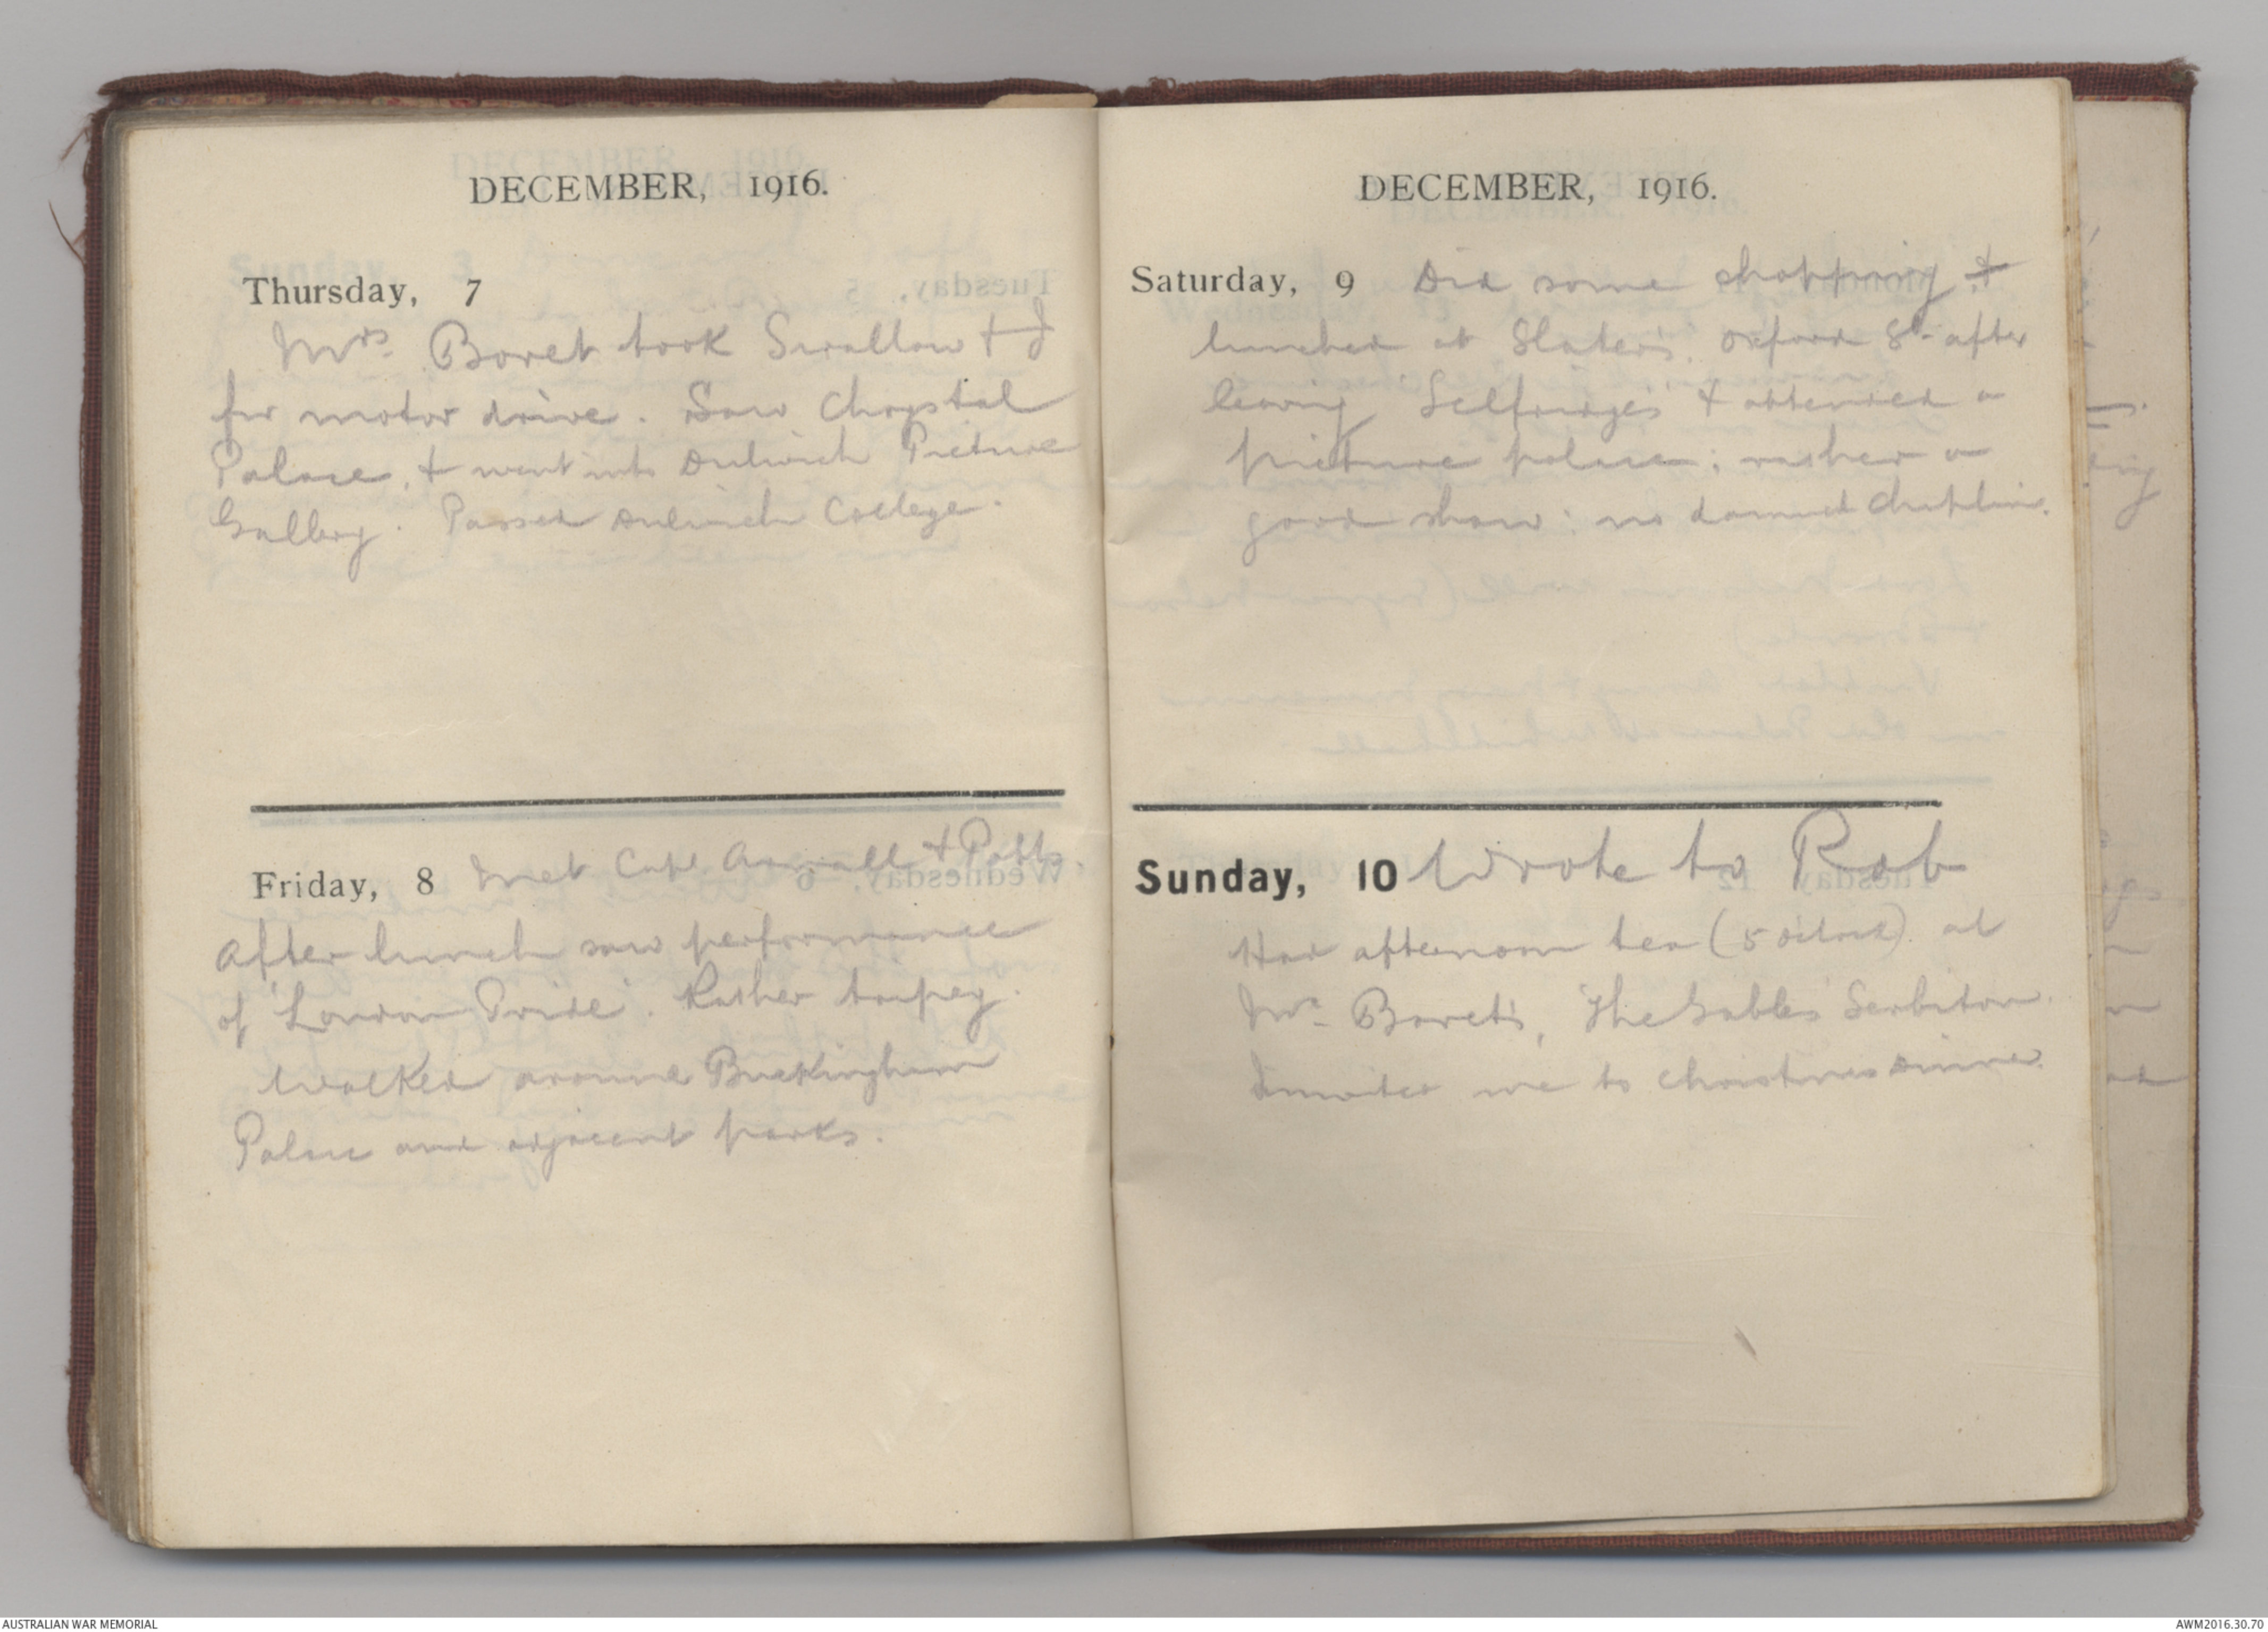 DECEMBER, 1916.
Thursday, 7
Mrs. Boret took Swallow + I
for motor drive. Saw Chrystal
Palace, + went into Dulwich Picture
Gallery. Passed Dulwich College.
Friday, 8 Met Capt. + Potts.
After lunch saw performance
of 'London Pride'. Rather
Walked around Buckingham
Palace and adjacent parks.
DECEMBER, 1916.
Saturday, 9 Did some shopping +
lunched at Slater's. Oxford St. after
leaving Selfridge's + attended a
picture palace; rather a
good show: no damned Chaplin.
Sunday, 10 Wrote to Rob
Had afternoon tea (5 o'clock) at
Mrs. Boret's, 'The Gables' Serbiton.
Invited me to Christmas dinner.
AUSTRALIAN WAR MEMORIAL
AWM2016.30.70